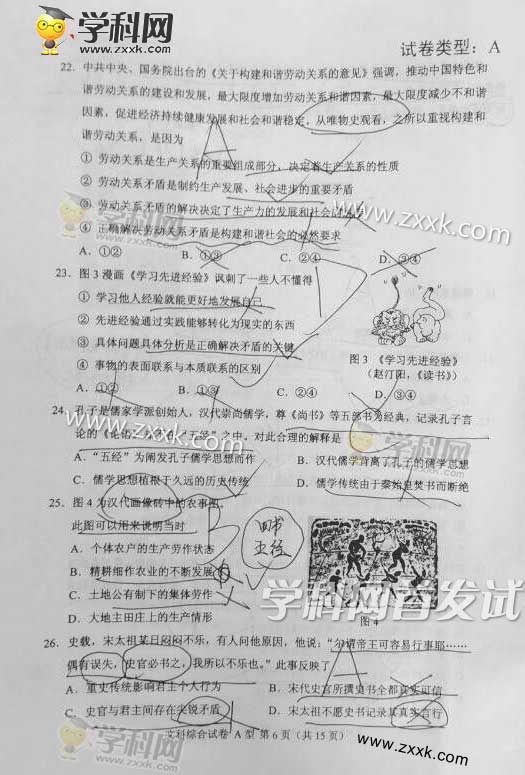 学科网
www.zxxk.com
试卷类型：A
22．中共中央、国务院出台的《关于构建和谐劳动关系的意见》强调，推动中国特色和
谐劳动关系的建设和发展，最大限度增加劳动关系和谐因素，最大限度减少不和谐
因素，促进经济持续健康发展和社会和谐稳定。从唯物史观看，之所以重视构建和
谐劳动关系，是因为
① 劳动关系是生产关系的重要组成部分，决定着生产关系的性质
② 劳动关系矛盾是制约生产发展、社会进步的重要矛盾
③ 劳动关系矛盾的解决决定了生产力的发展和社会的
④ 正确解决劳动关系矛盾是构建和谐社会的必然要求
A．①② B．①③ C．②④ D．③④
www.zxxk.com
23．图 3 漫画《学习先进经验》讽刺了一些人不懂得
① 学习他人经验就能更好地发展自己
② 先进经验通过实践能够转化为现实的东西
③ 具体问题具体分析是正确解决矛盾的关键
④ 事物的表面联系与本质联系的区别
A．①② B．①③ C．②④ D．③④
图 3 《学习先进经验》
（赵汀阳，《读书》）
24．孔子是儒家学派创始人，汉代崇尚儒学，尊《尚书》等五部书为经典，记录孔子言
论的《论语》却不在“五经”之中。对此合理的解释是
A．“五经”为阐发孔子儒学思想而作 B．汉代儒学背离了孔子的儒学思想
C．儒学思想植根于久远的历史传统 D．儒学传统由于秦始皇焚书而断绝
25．图 4 为汉代画像砖中的农事图。
此图可以用来说明当时
A．个体农户的生产劳作状态
B．精耕细作农业的不断发展
C．土地公有制下的集体劳作
D．大地主田庄上的生产情形
四书
五经
图 4
学科网首发试
26．史载，宋太祖某日闷闷不乐，有人问他原因，他说：“尔谓帝王可容易行事耶……
偶有误失，史官必书之，我所以不乐也。”此事反映了
A．重史传统影响君主个人行为 B．宋代史官所撰史书全都真实可信
C．史官与君主间存在尖锐矛盾 D．宋太祖不愿史书记录其真实言行
文科综合试卷 A 型 第 6 页（共 15 页）
学科网
www.zxxk.com